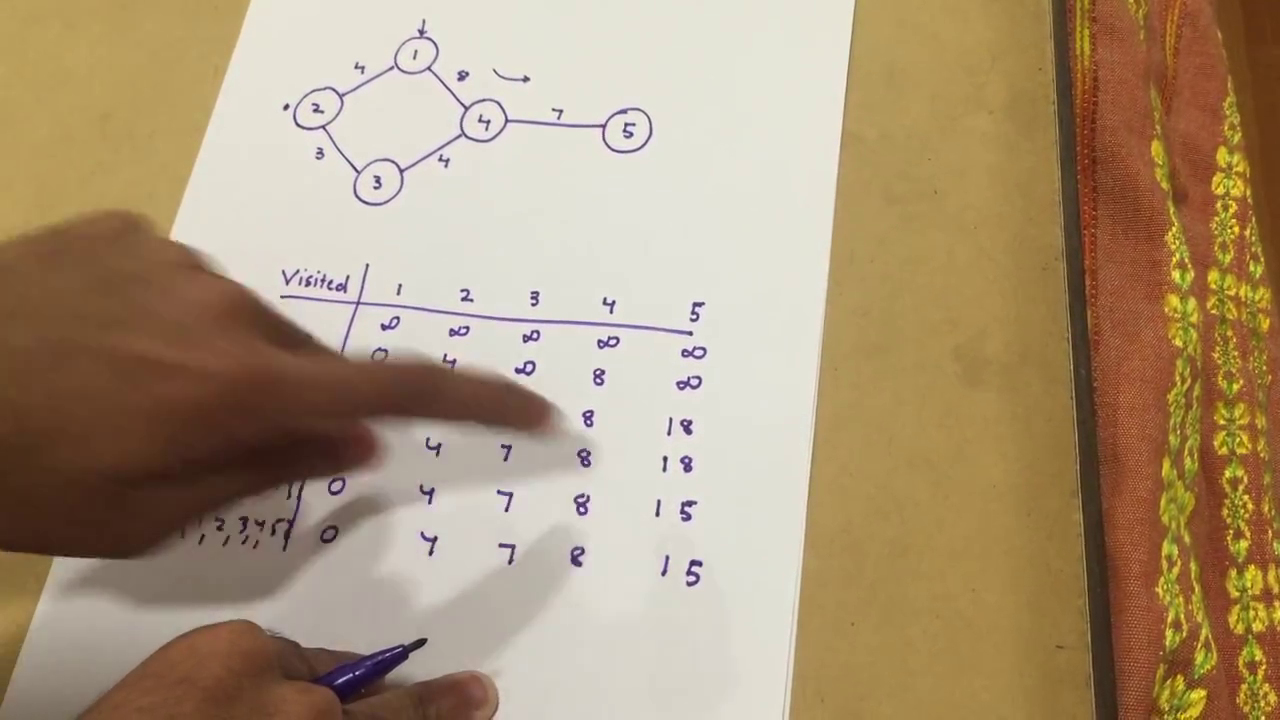 1
4
8
2
4
7
5
3
4
3
Visited 1 2 3 4 5
∞ ∞ ∞ ∞ ∞
0 4 ∞ 8 ∞
8 18
4 7 8 18
0 4 7 8 15
1,2,3,4,5} 0 4 7 8 15